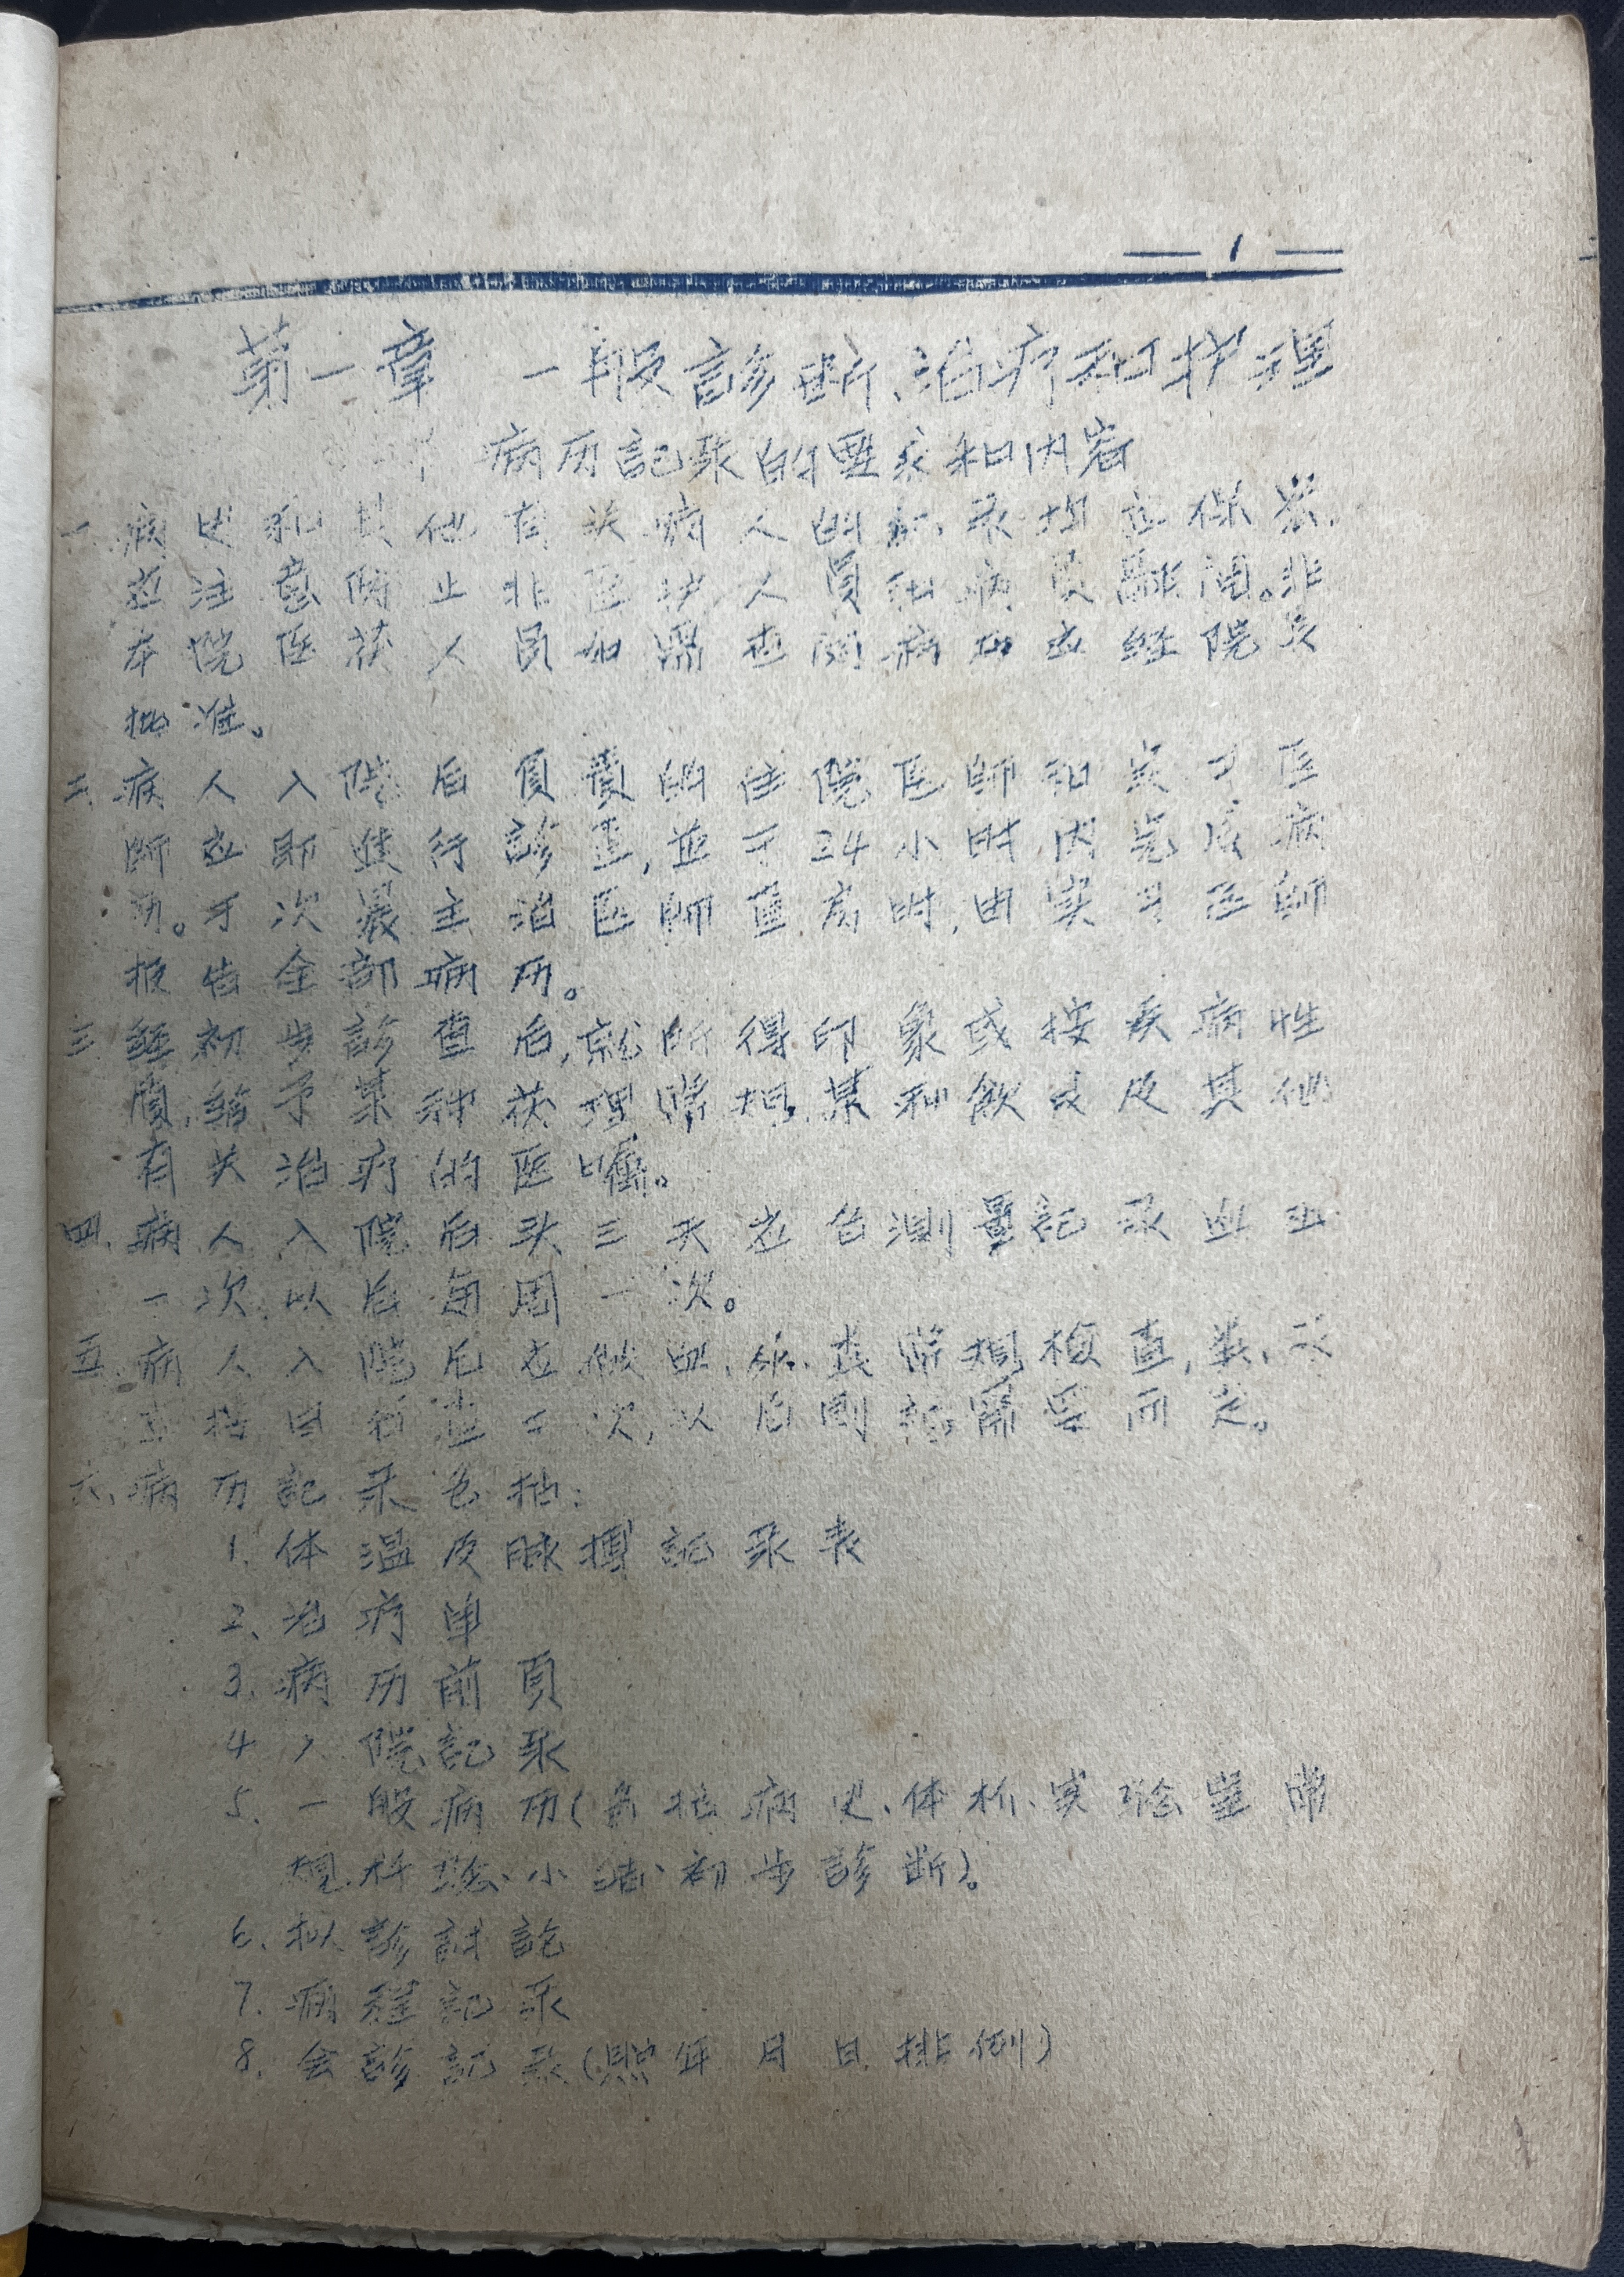 — 1 —
第一章 一般診断、治疗和护理
病历記录的要求和内容
一、病史和其他有关病人的記录均应保密.
应注意防止非医护人員和病員翻閱。非
本院医获人員如需查閱病历应经院长
批准。
二、病人入院后負責的住院医師和实习医
師应即進行診查,並于24小时内完成病
历。于次晨主治医師查房时,由实习医師
报告全部病历。
三、經初步診查后,就所得印象或按疾病性
質,給予某种获理常规,某种飲食及其他
有关治疗的医嘱。
四、病人入院后头三天应每測量記录血压
一次,以后每周一次。
五、病人入院后应做血、尿、粪常規檢查,粪、
查一次,以后則視需要而定。
六、病历記录包括:
1. 体温及脉搏記录表
2、治疗单
3. 病历前頁
4 入院記录
5. 一般病历(包括病史、体析、实驗室常
規检驗、小結、初步診断)。
6、拟診討論
7. 病程記录
8. 会診記录(照年月日排例)